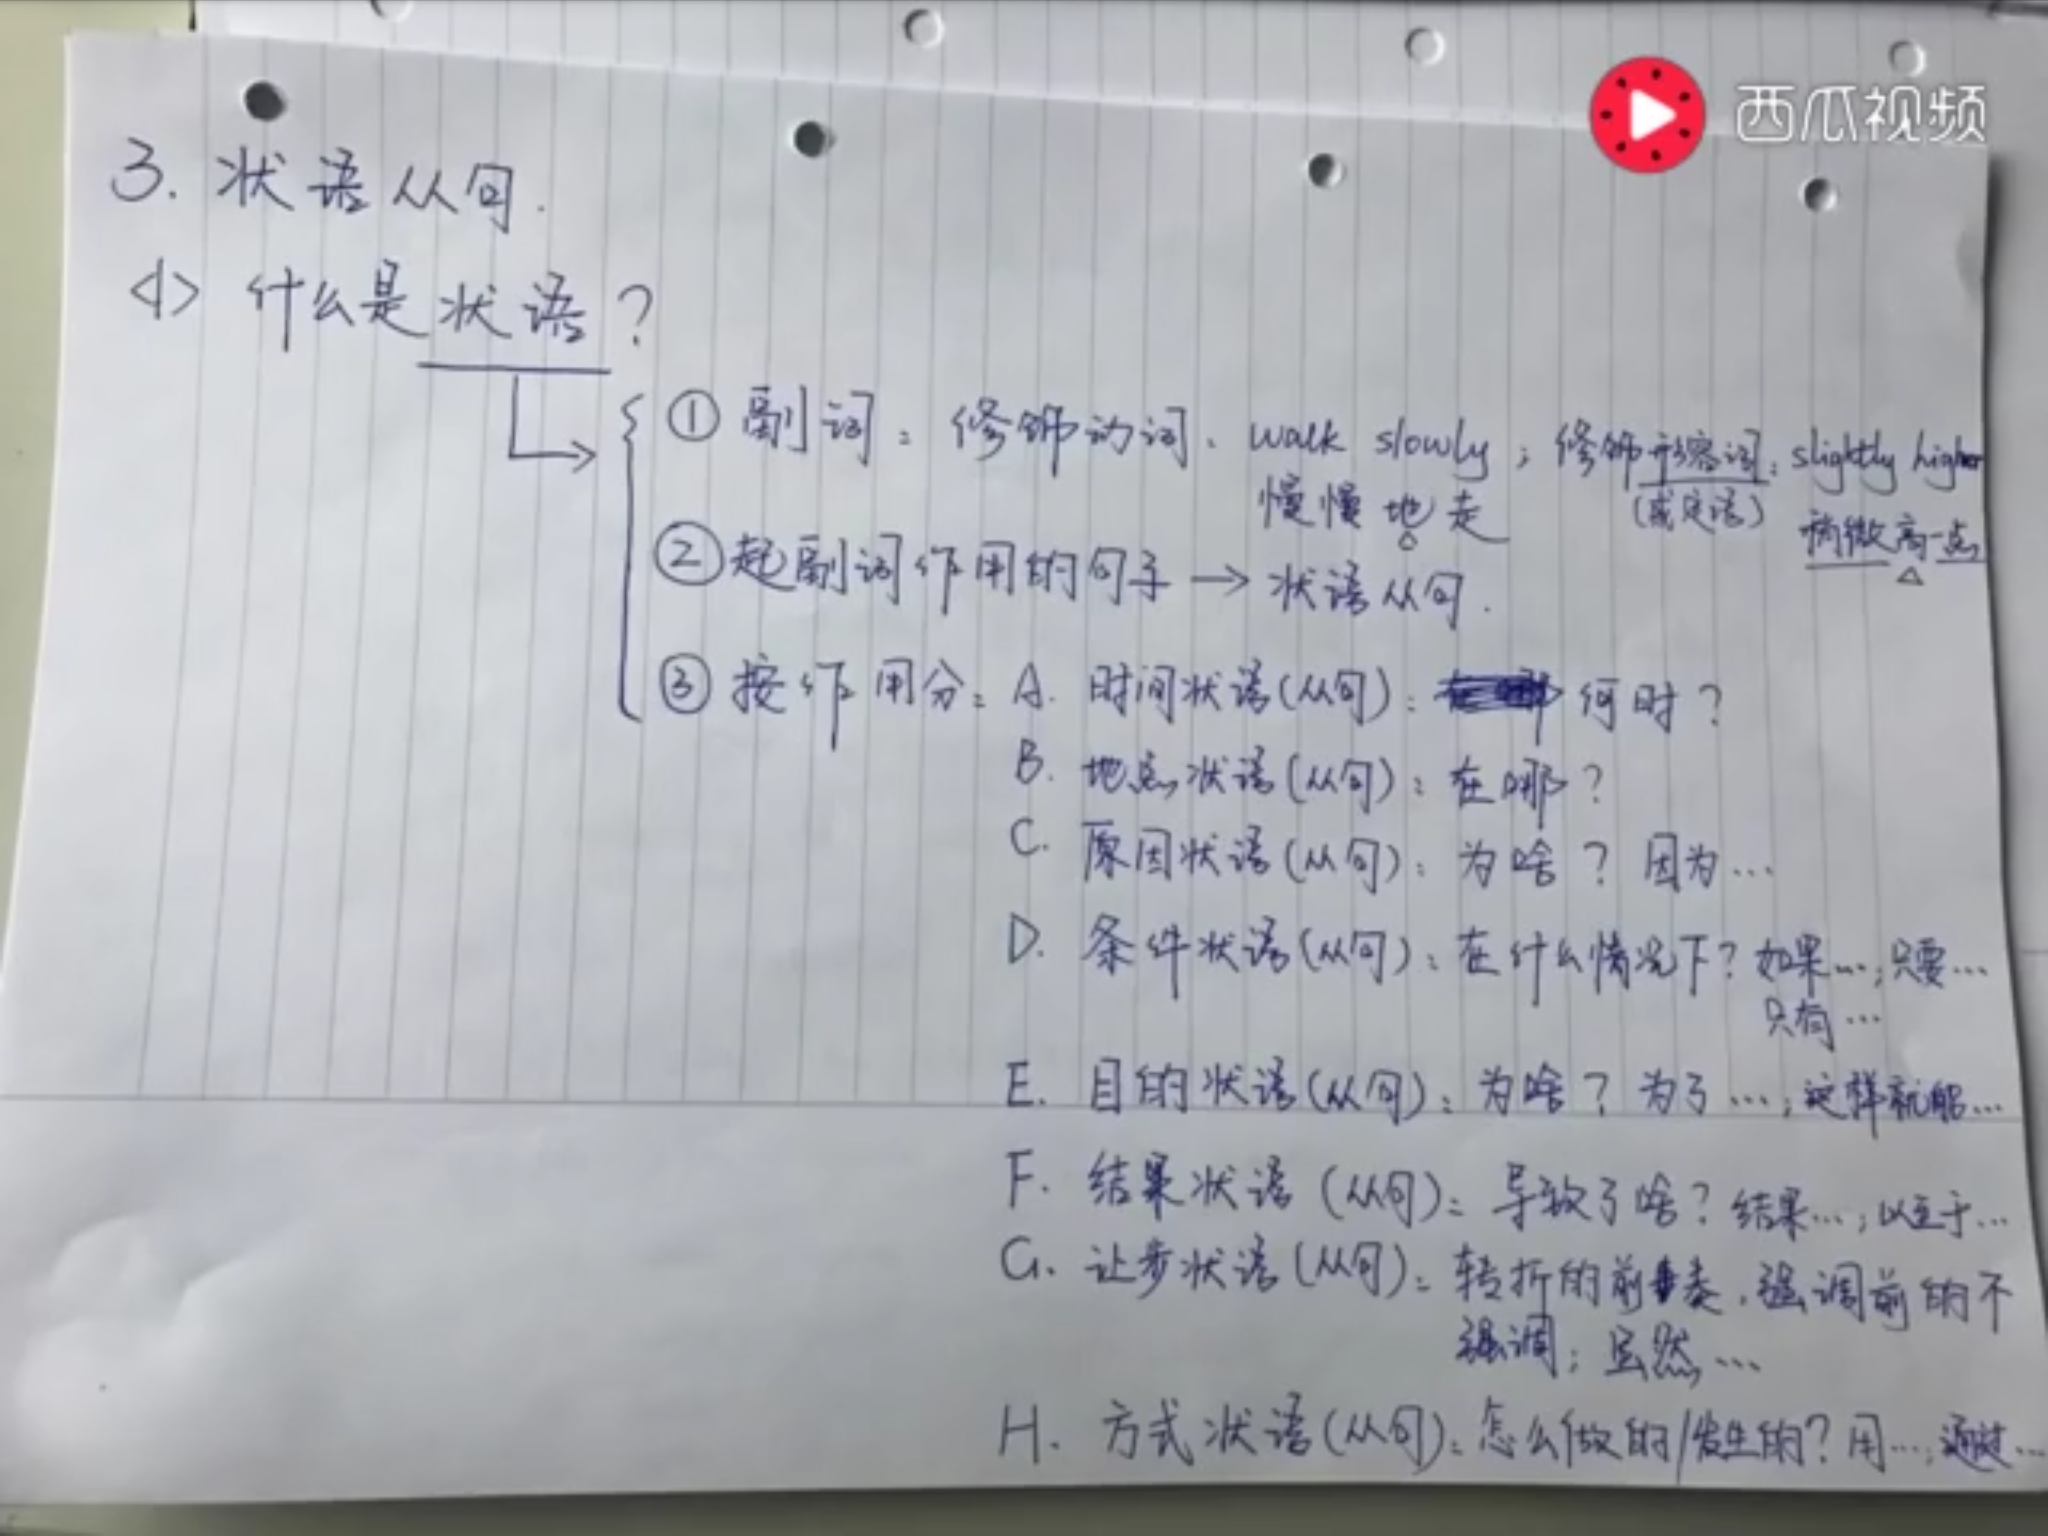 西瓜视频
3. 状语从句.
<1> 什么是状语?
① 副词: 修饰动词. walk slowly; 修饰形容词: slightly higher
慢慢地走 (或定语) 稍微高一点
② 起副词作用的句子 → 状语从句.
③ 按作用分: A. 时间状语(从句): 何时?
B. 地点状语(从句): 在哪?
C. 原因状语(从句): 为啥? 因为…
D. 条件状语(从句): 在什么情况下? 如果…; 只要…
只有…
E. 目的状语(从句): 为啥? 为了…; 这样就能…
F. 结果状语(从句): 导致了啥? 结果…; 以至于…
G. 让步状语(从句): 转折的前奏. 强调前的不
强调; 虽然…
H. 方式状语(从句): 怎么做的/发生的? 用…; 通过…